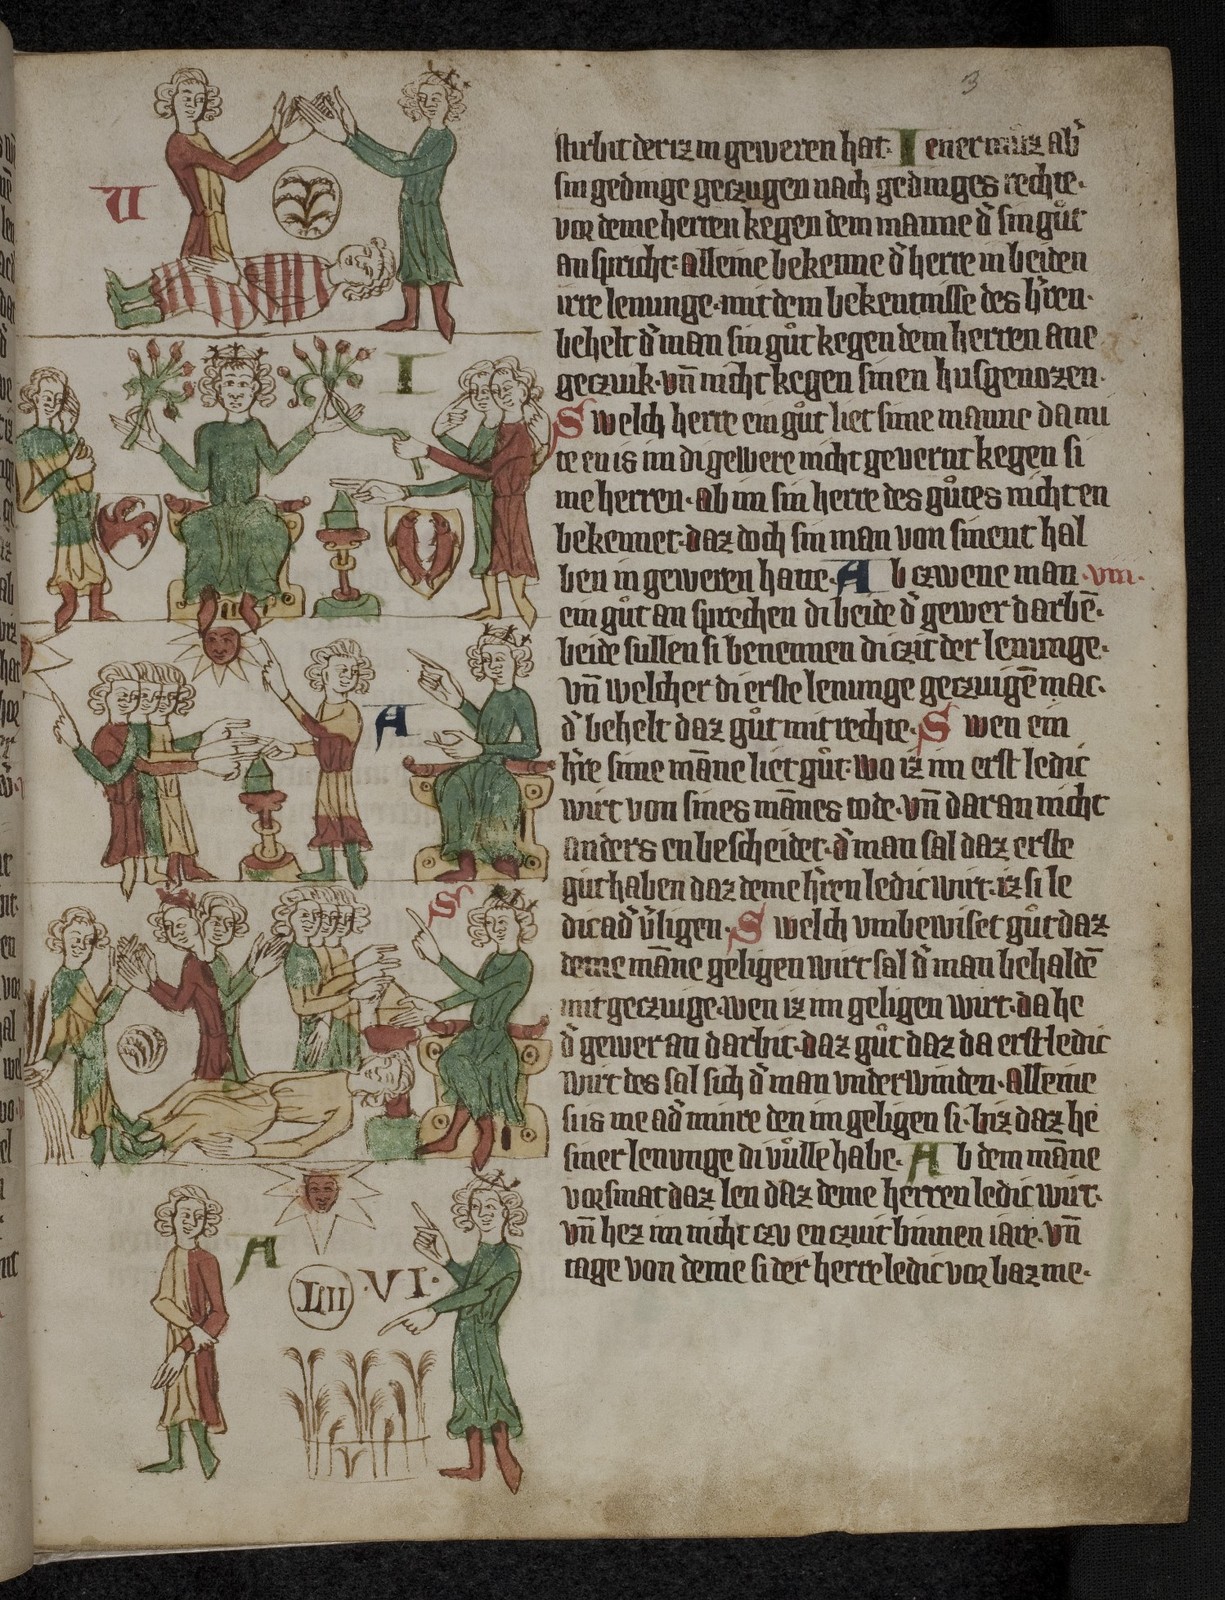 3
stirbit der iz in geweren hat. I ener muz ab᷑
sin gedinge gezugen nach gedinges rechte.
vor deme herren kegen dem manne d᷑ sin gůt
an spricht. alleine bekenne d᷑ herre in beiden
irre lenunge. mit dem bekentnisse des h᷑ren.
behelt d᷑ man sin gůt kegen dem herren ane
geczuik. vn̄ nicht kegen sinen husgenozen.
S welch herre ein gůt liet sime manne da mi
te en is im di gewere nicht gevernt kegen si
me herren. ab im sin herre des gůtes nicht en
bekennet. daz doch sin man von sinent hal
ben in geweren hatte. A b czwene man .viii.
ein gůt an sprechen di beide d᷑ gewer darbē.
beide sullen si benennen di czit der lenunge.
vn̄ welcher di erste lenunge geczuigē mac.
d᷑ behelt daz gůt mit rechte. S wen ein
h᷑re sime māne liet gůt. wo iz im erst ledic
wirt von sines mānes tode. vn̄ daran nicht
anders en bescheidet. d᷑ man sal daz erste
gut haben daz deme h᷑ren ledic wirt. iz si le
dic ad᷑ v᷑ligen. S welch vmbewiset gůt daz
deme māne geligen wirt sal d᷑ man behaldē
mit geczuige. wen iz im geligen wirt. da he
d᷑ gewer an darbit. daz gůt daz da erst ledic
wirt des sal sich d᷑ man vnderwinden. Alleine
si is me ad᷑ minre den im geligen si. biz daz he
siner lenunge di vůlle habe. A b dem māne
vorsmat daz len daz deme herren ledic wirt.
vn̄ hez im nicht czv en czuit binnen iare. vn̄
tage von deme si der herre ledic vor baz me.
U
I
A
S
A
LII
VI.